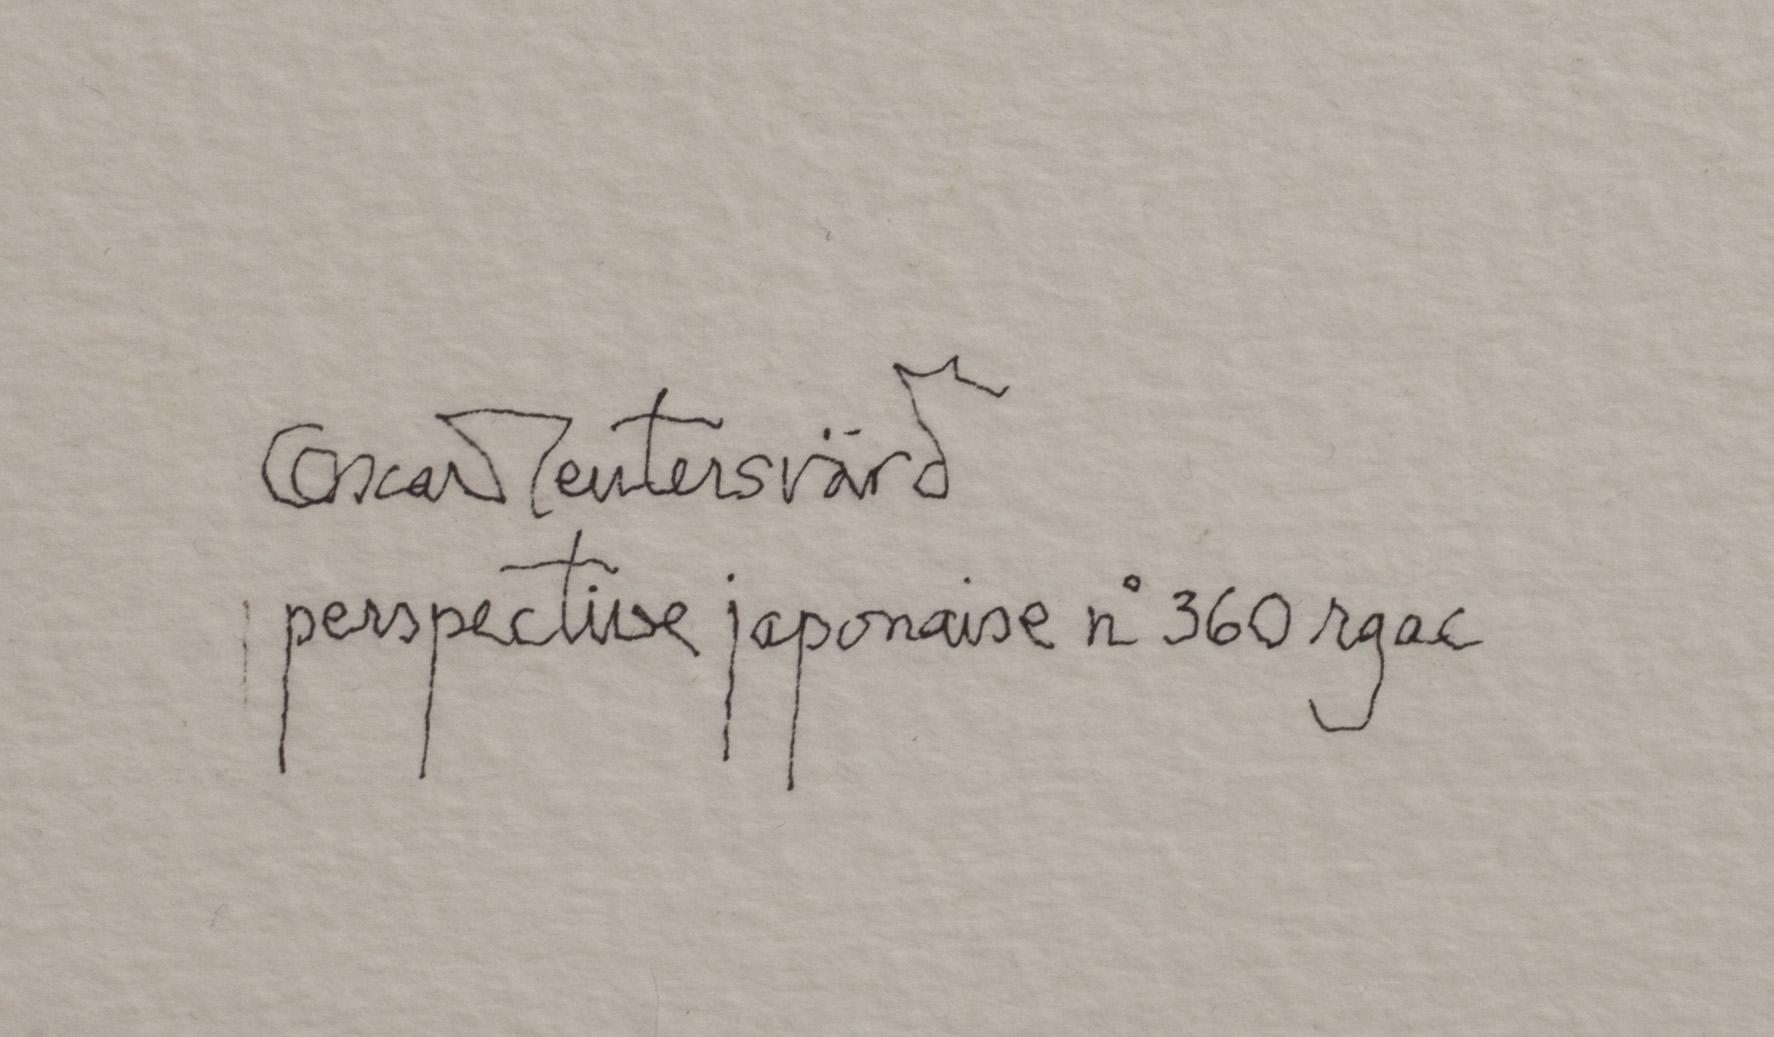 Oscar Reutersvärd
perspective japonaise n° 360 rgac